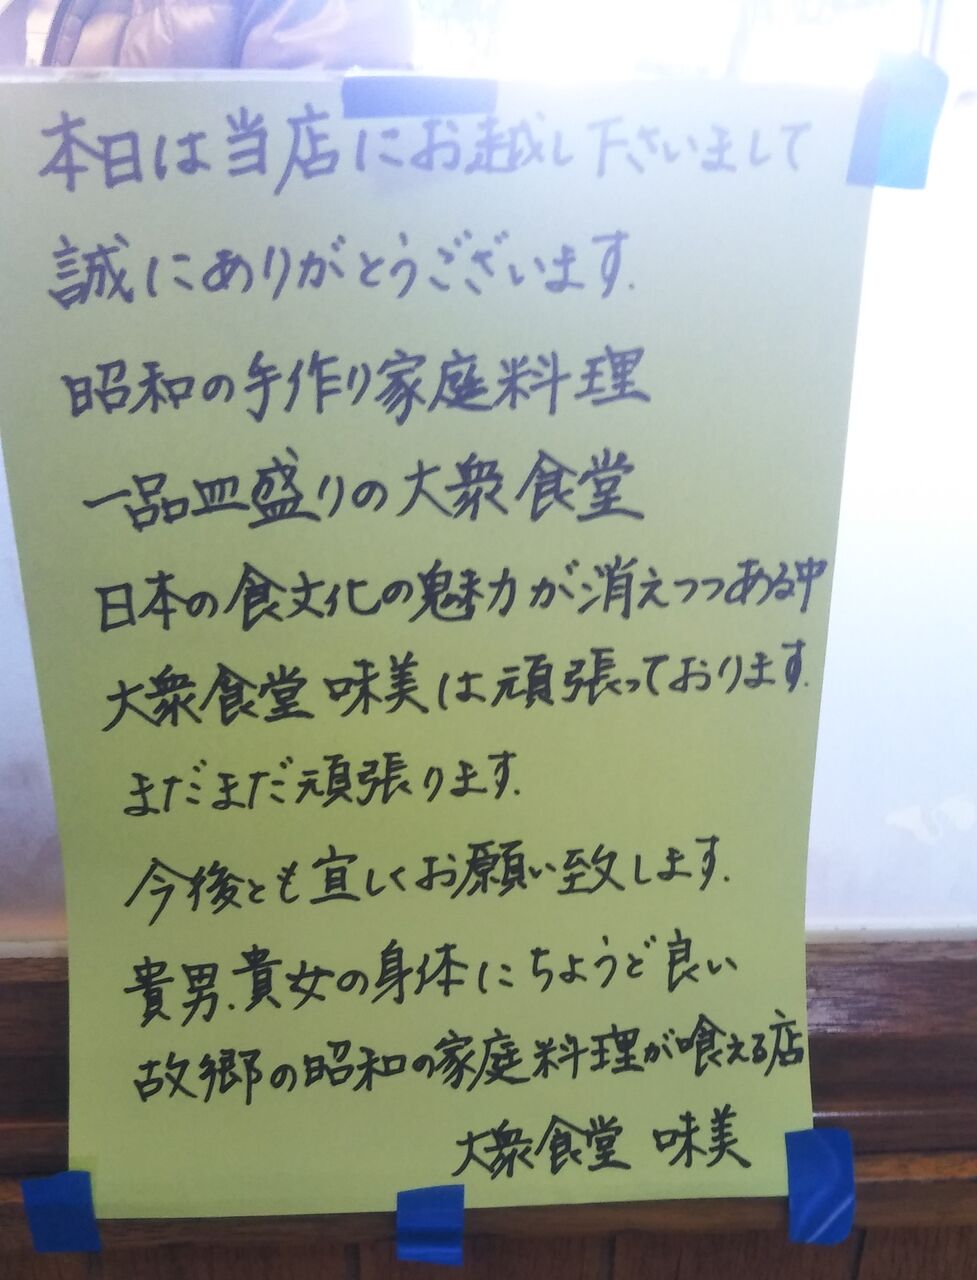 本日は当店にお越し下さいまして
誠にありがとうございます.
昭和の手作り家庭料理
一品皿盛りの大衆食堂
日本の食文化の魅力が消えつつある中
大衆食堂 味美は頑張っております.
まだまだ頑張ります.
今後とも宜しくお願い致します.
貴男、貴女の身体にちょうど良い
故郷の昭和の家庭料理が喰える店
大衆食堂 味美